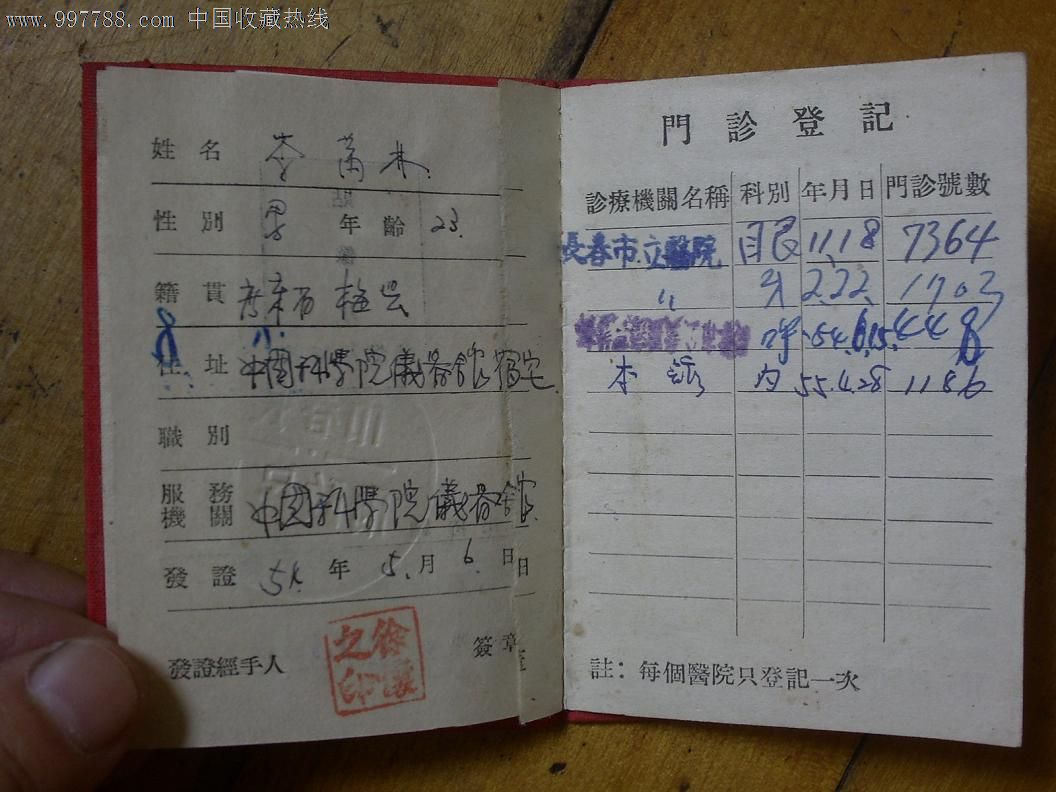 www.997788.com 中国收藏热线
姓名 岑 林
性別 男 年齡 23.
籍貫 廣東省 梅县
住址 中國科學院儀器館宿宅
職別
服務機關 中國科學院儀器館
發證 年 5. 月 6. 日
發證經手人 簽章
門診登記
診療機關名稱 科別 年月日 門診號數
長春市立醫院 眼 11.18 7364
〃 2.22. 1703
54.6.15. 448
本 内 55.4.28 1186
註：每個醫院只登記一次